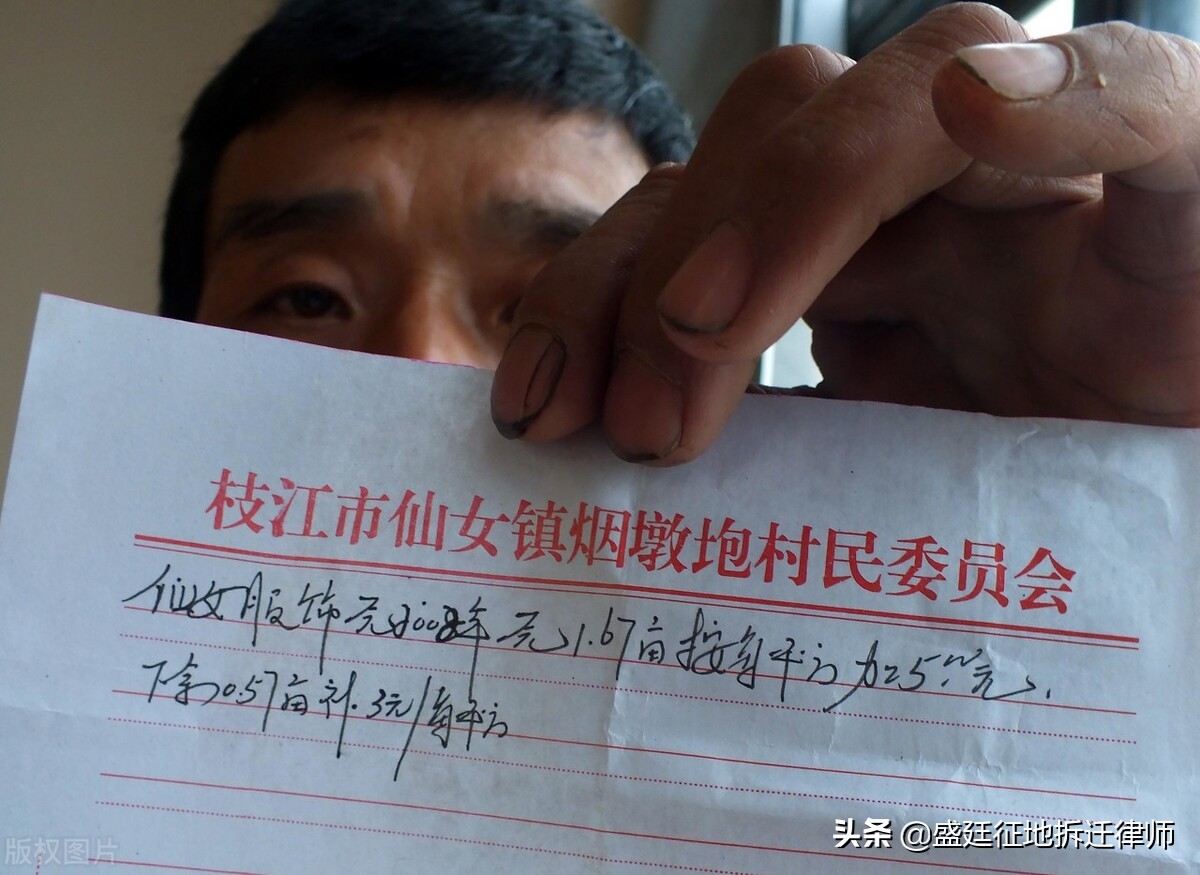 枝江市仙女镇烟墩垉村民委员会
仙女服饰元2008年元1.67亩按每平方加25.元
下余0.57亩补.3元/每平方
版权图片
头条 @盛廷征地拆迁律师